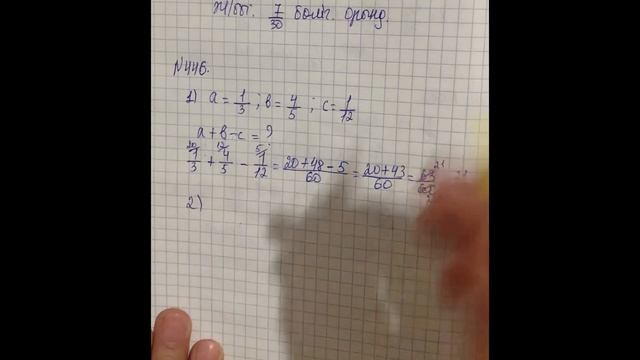 Ж/бы: 7/30 бөлі. орынд.
№446.
1) a = 1/3 ; b = 4/5 ; c = 1/12
a + b - c = ?
1/3 + 4/5 - 1/12 = 20+48-5/60 = 20+43/60 = 63/60
2)